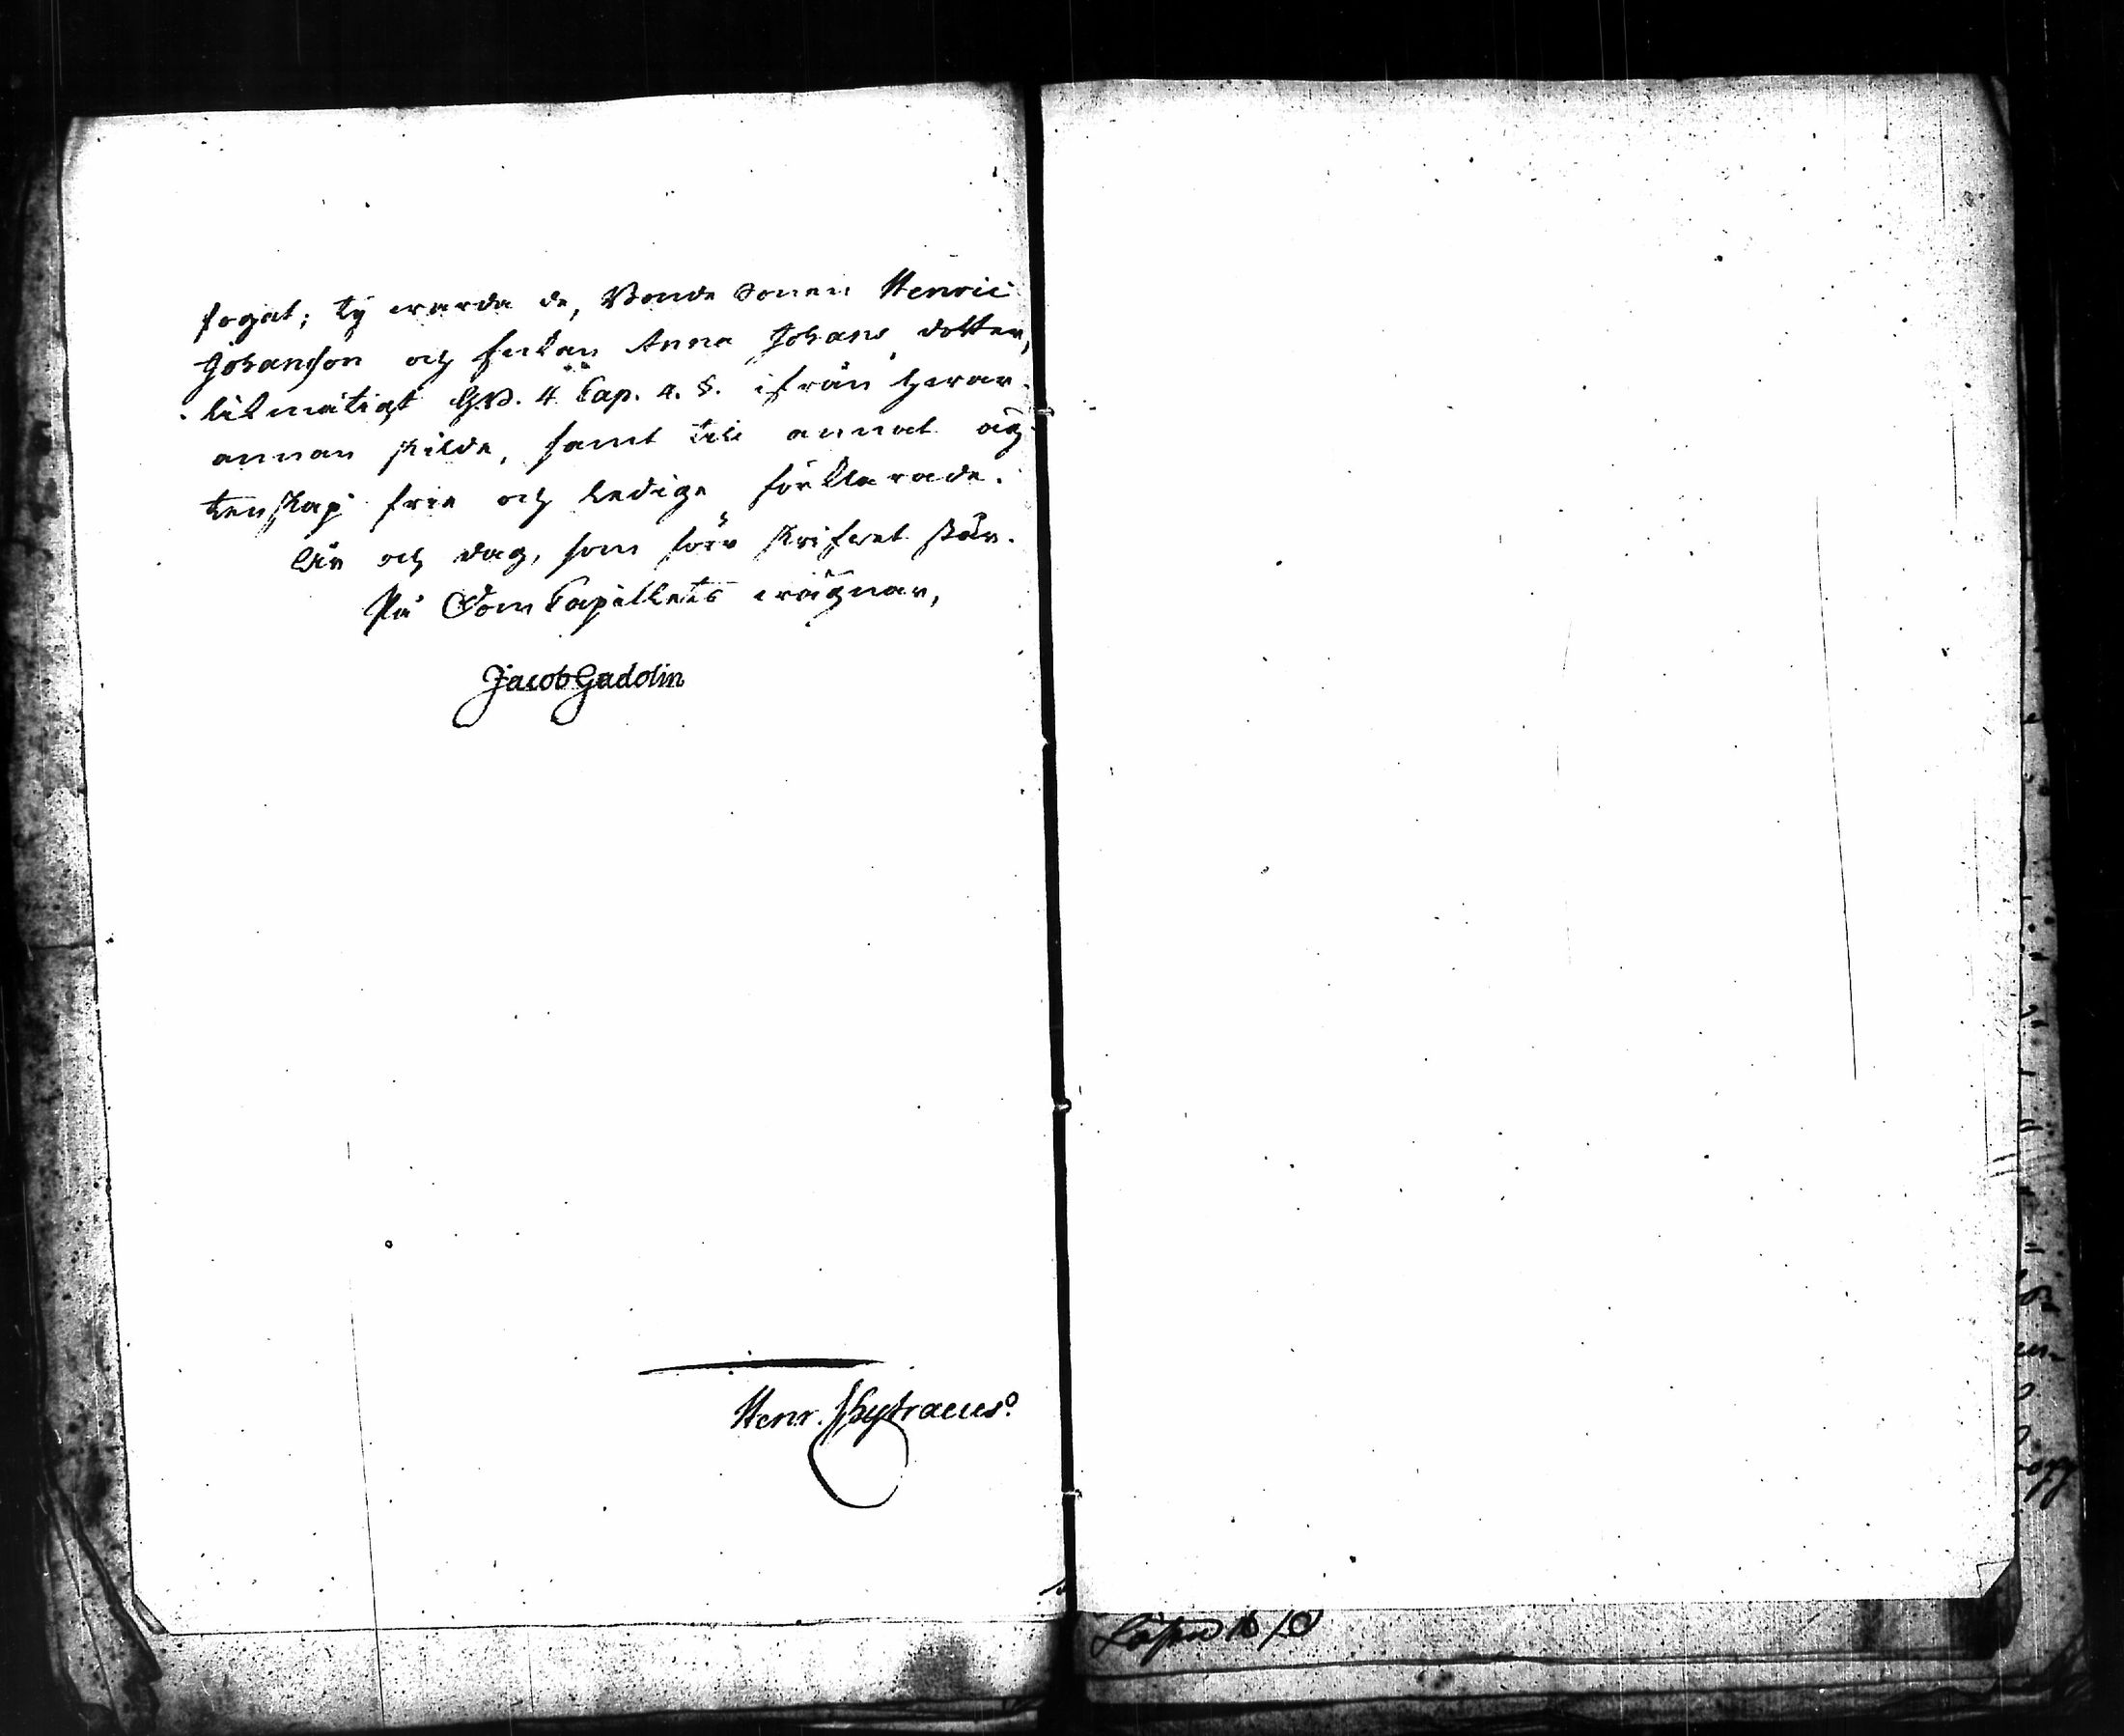 fogat; ty warda de, Bonde Sonen Henric
Johansson och Enkan Anna Johans dotter,
likmätigt G.B. 4 Cap. 4. §. ifrån hwar-
annan skilde, samt till annat äg
tenskap frie och ledige förklarade.
År och dag, som förr skrifwet står.
På Dom Capitlets wägnar,
Jacob Gadolin
Henr.